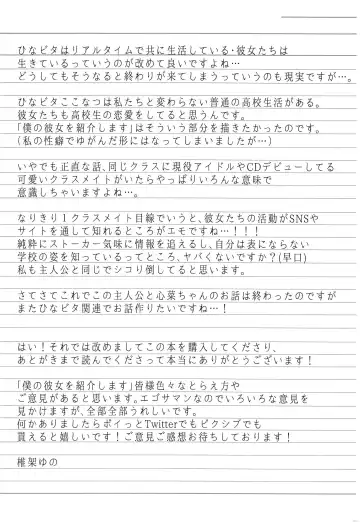 ひなビタはリアルタイムで共に生活している・彼女たちは
生きているっていうのが改めて良いですよね…
どうしてもそうなると終わりが来てしまうっていうのも現実ですが…。
ひなビタここなつは私たちと変わらない普通の高校生活がある。
彼女たちも高校生の恋愛をしてると思うんです。
「僕の彼女を紹介します」はそういう部分を描きたかったのです。
(私の性癖でゆがんだ形にはなってしまいましたが…)
いやでも正直な話、同じクラスに現役アイドルやCDデビューしてる
可愛いクラスメイトがいたらやっぱりいろんな意味で
意識しちゃいますよね…。
なりきり1クラスメイト目線でいうと、彼女たちの活動がSNSや
サイトを通して知れるところがエモですね…！！！
純粋にストーカー気味に情報を追えるし、自分は表にならない
学校の姿を知っているってところ、ヤバくないですか？(早口)
私も主人公と同じでシコり倒してると思います。
さてさてこれでこの主人公と心菜ちゃんのお話は終わったのですが
またひなビタ関連でお話作りたいですね！
はい！それでは改めましてこの本を購入してくださり、
あとがきまで読んでくださって本当にありがとうございます！
「僕の彼女を紹介します」皆様色々なとらえ方や
ご意見があると思います。エゴサマンなのでいろいろな意見を
見かけますが、全部全部うれしいです。
何かありましたらポイっとTwitterでもピクシブでも
貰えると嬉しいです！ご意見ご感想お待ちしております！
稚架ゆの